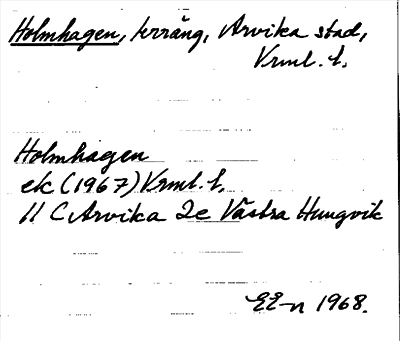 Holmhagen, terräng, Arvika stad,
Vrml. l.
Holmhagen
ek (1967) Vrml. l,
11 C Arvika 2e Västra Hungvik
EE-n 1968.